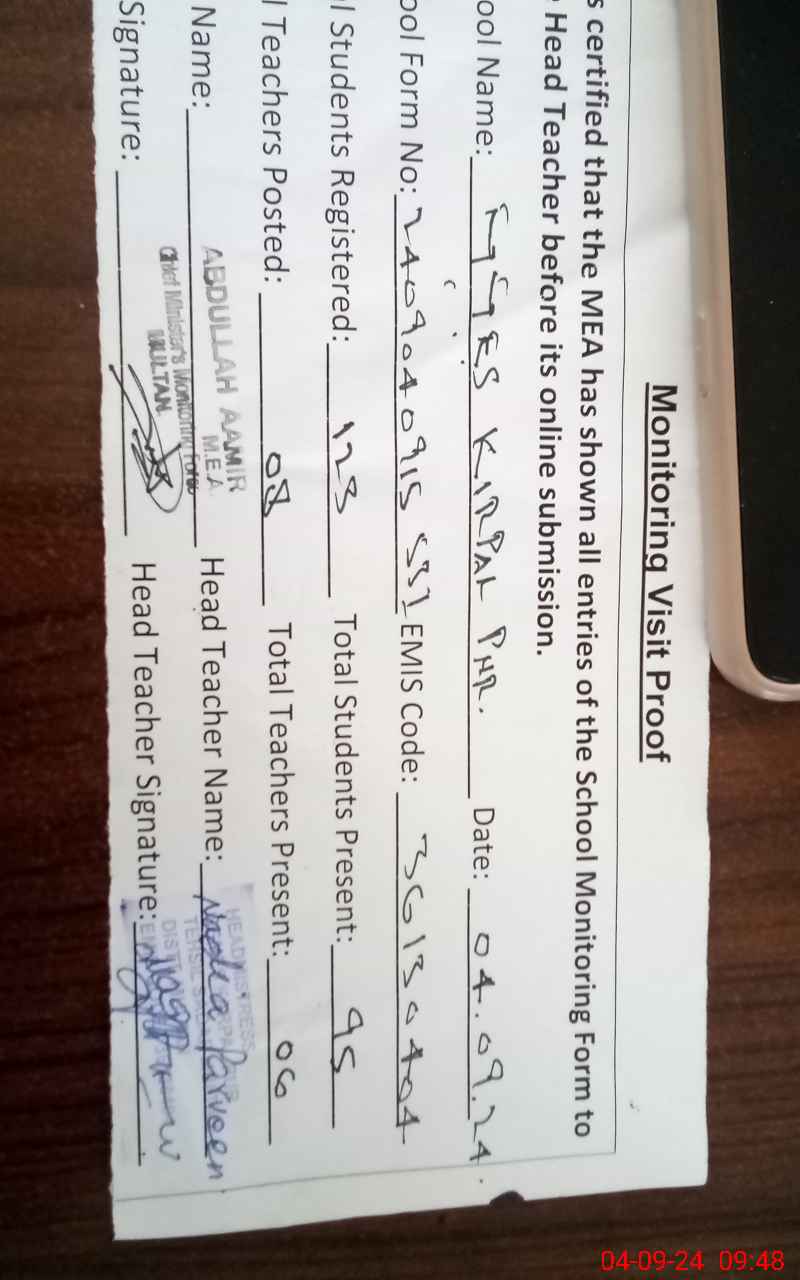 Monitoring Visit Proof
s certified that the MEA has shown all entries of the School Monitoring Form to
Head Teacher before its online submission.
ool Name: KIRPAL PUR. Date: 04.09.24.
ool Form No: 2409040915 557 EMIS Code: 36130404
l Students Registered: 123 Total Students Present: 95
l Teachers Posted: 08 Total Teachers Present: 06
Name: ABDULLAH AAMIR Head Teacher Name: Nadia Parveen
M.E.A
Chief Minister's Monitoring Force
MULTAN
HEADMISTRESS
Signature: Head Teacher Signature:
04-09-24 09:48